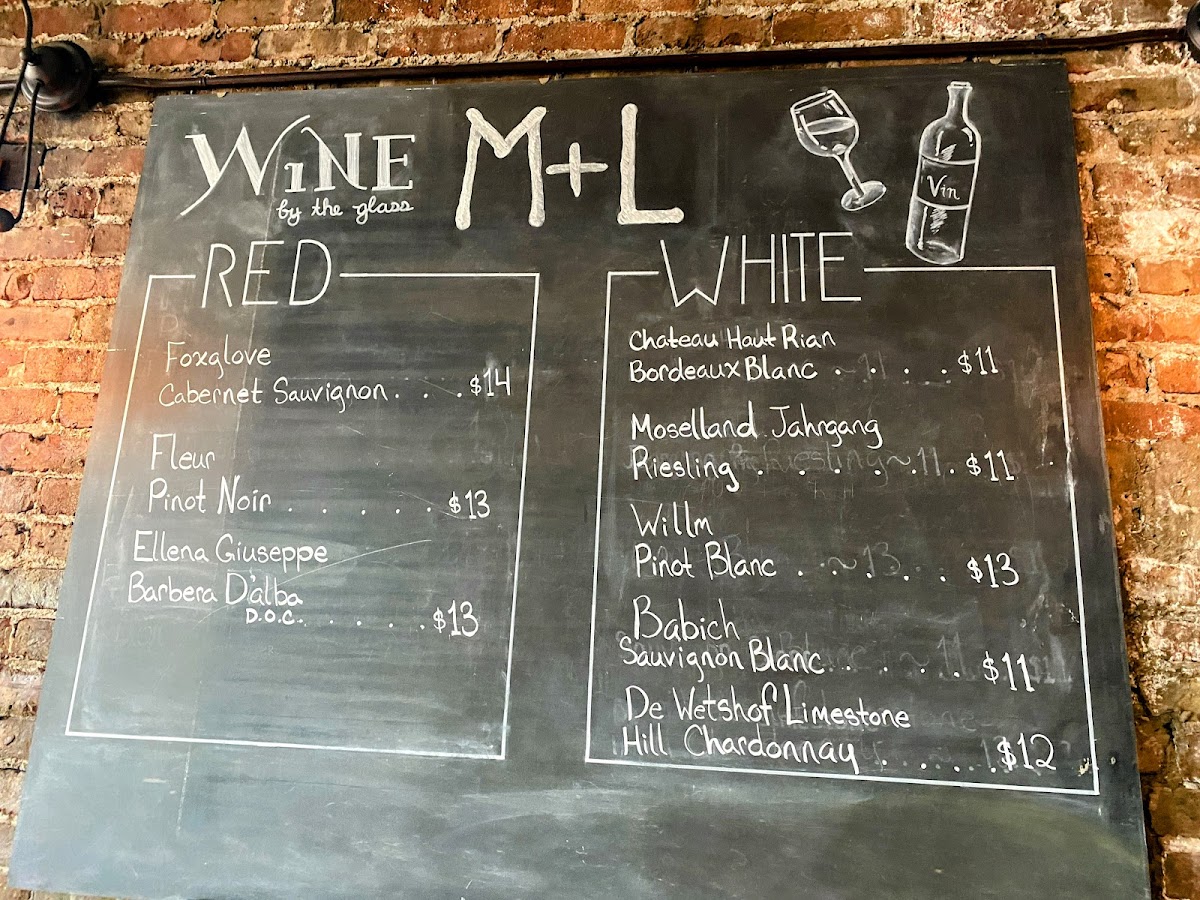 WiNE
by the glass
M+L
Vin
RED
Foxglove
Cabernet Sauvignon . . . $14
Fleur
Pinot Noir . . . . . . $13
Ellena Giuseppe
Barbera D'alba
D.O.C. . . . . . $13
WHITE
Chateau Haut Rian
Bordeaux Blanc . . . . $11
Moselland Jahrgang
Riesling . . . . . . $11
Willm
Pinot Blanc . . . . . $13
Babich
Sauvignon Blanc . . . . $11
De Wetshof Limestone
Hill Chardonnay . . . . $12